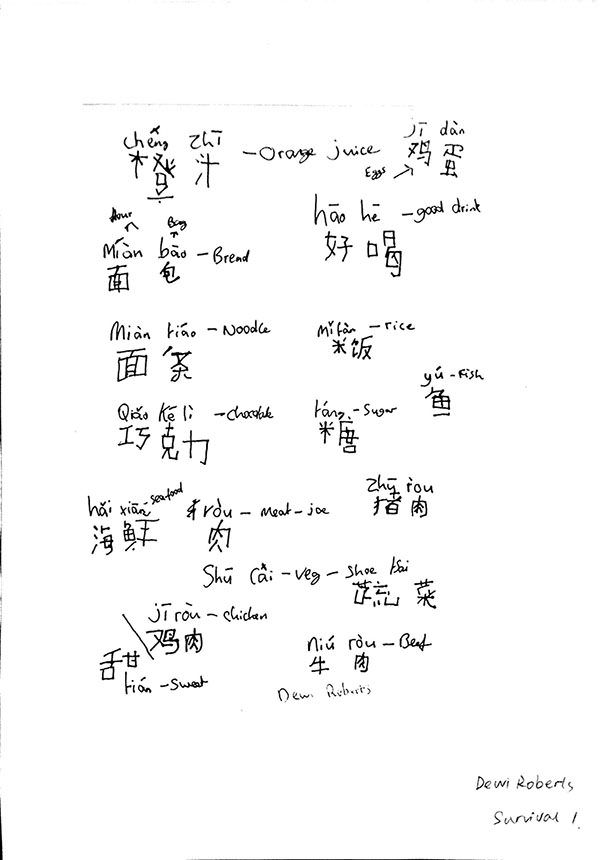 chéng zhī - orange juice
橙 汁
jī dàn
鸡 蛋
Eggs
hāo hē - good drink
好 喝
flour Bag
Miàn bāo - Bread
面 包
Miàn tiáo - Noodle
面 条
mǐ fàn - rice
米饭
yú - Fish
鱼
Qiǎo Kē lì - chocolate
巧 克 力
táng - Sugar
糖
hǎi xiān seafood
海 鲜
ròu - meat - joe
肉
zhū ròu
猪 肉
Shū Cài - veg - shoe tsai
蔬 菜
jī ròu - chicken
鸡肉
niú ròu - Beef
牛 肉
甜
tián - sweet
Dewi Roberts
Dewi Roberts
Survival 1